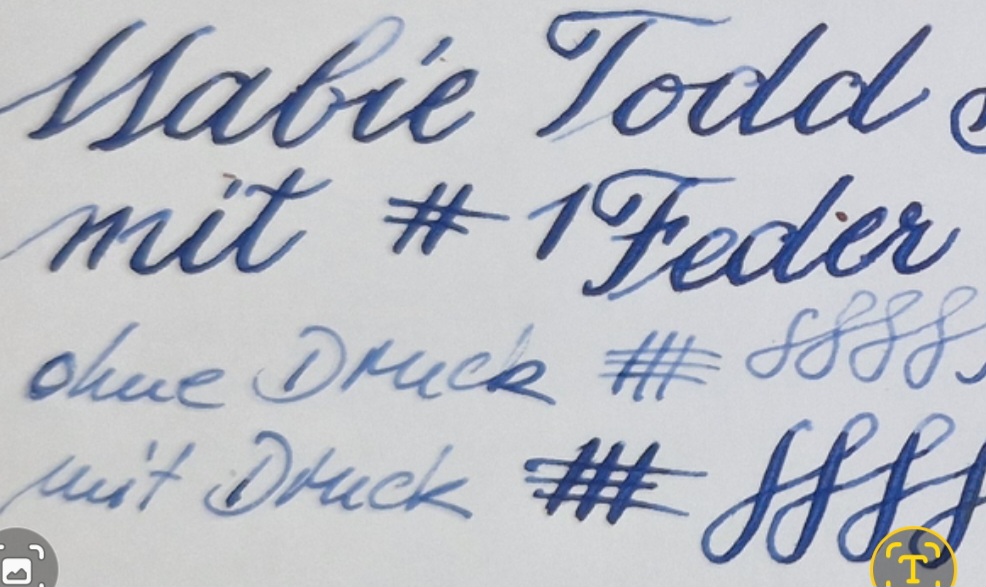 Mabie Todd
mit # 1 Feder
ohne Druck
mit Druck